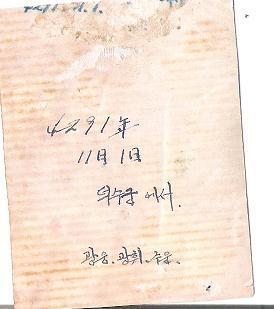 4291年
11月 1日
덕수궁에서.
광웅. 광휘.